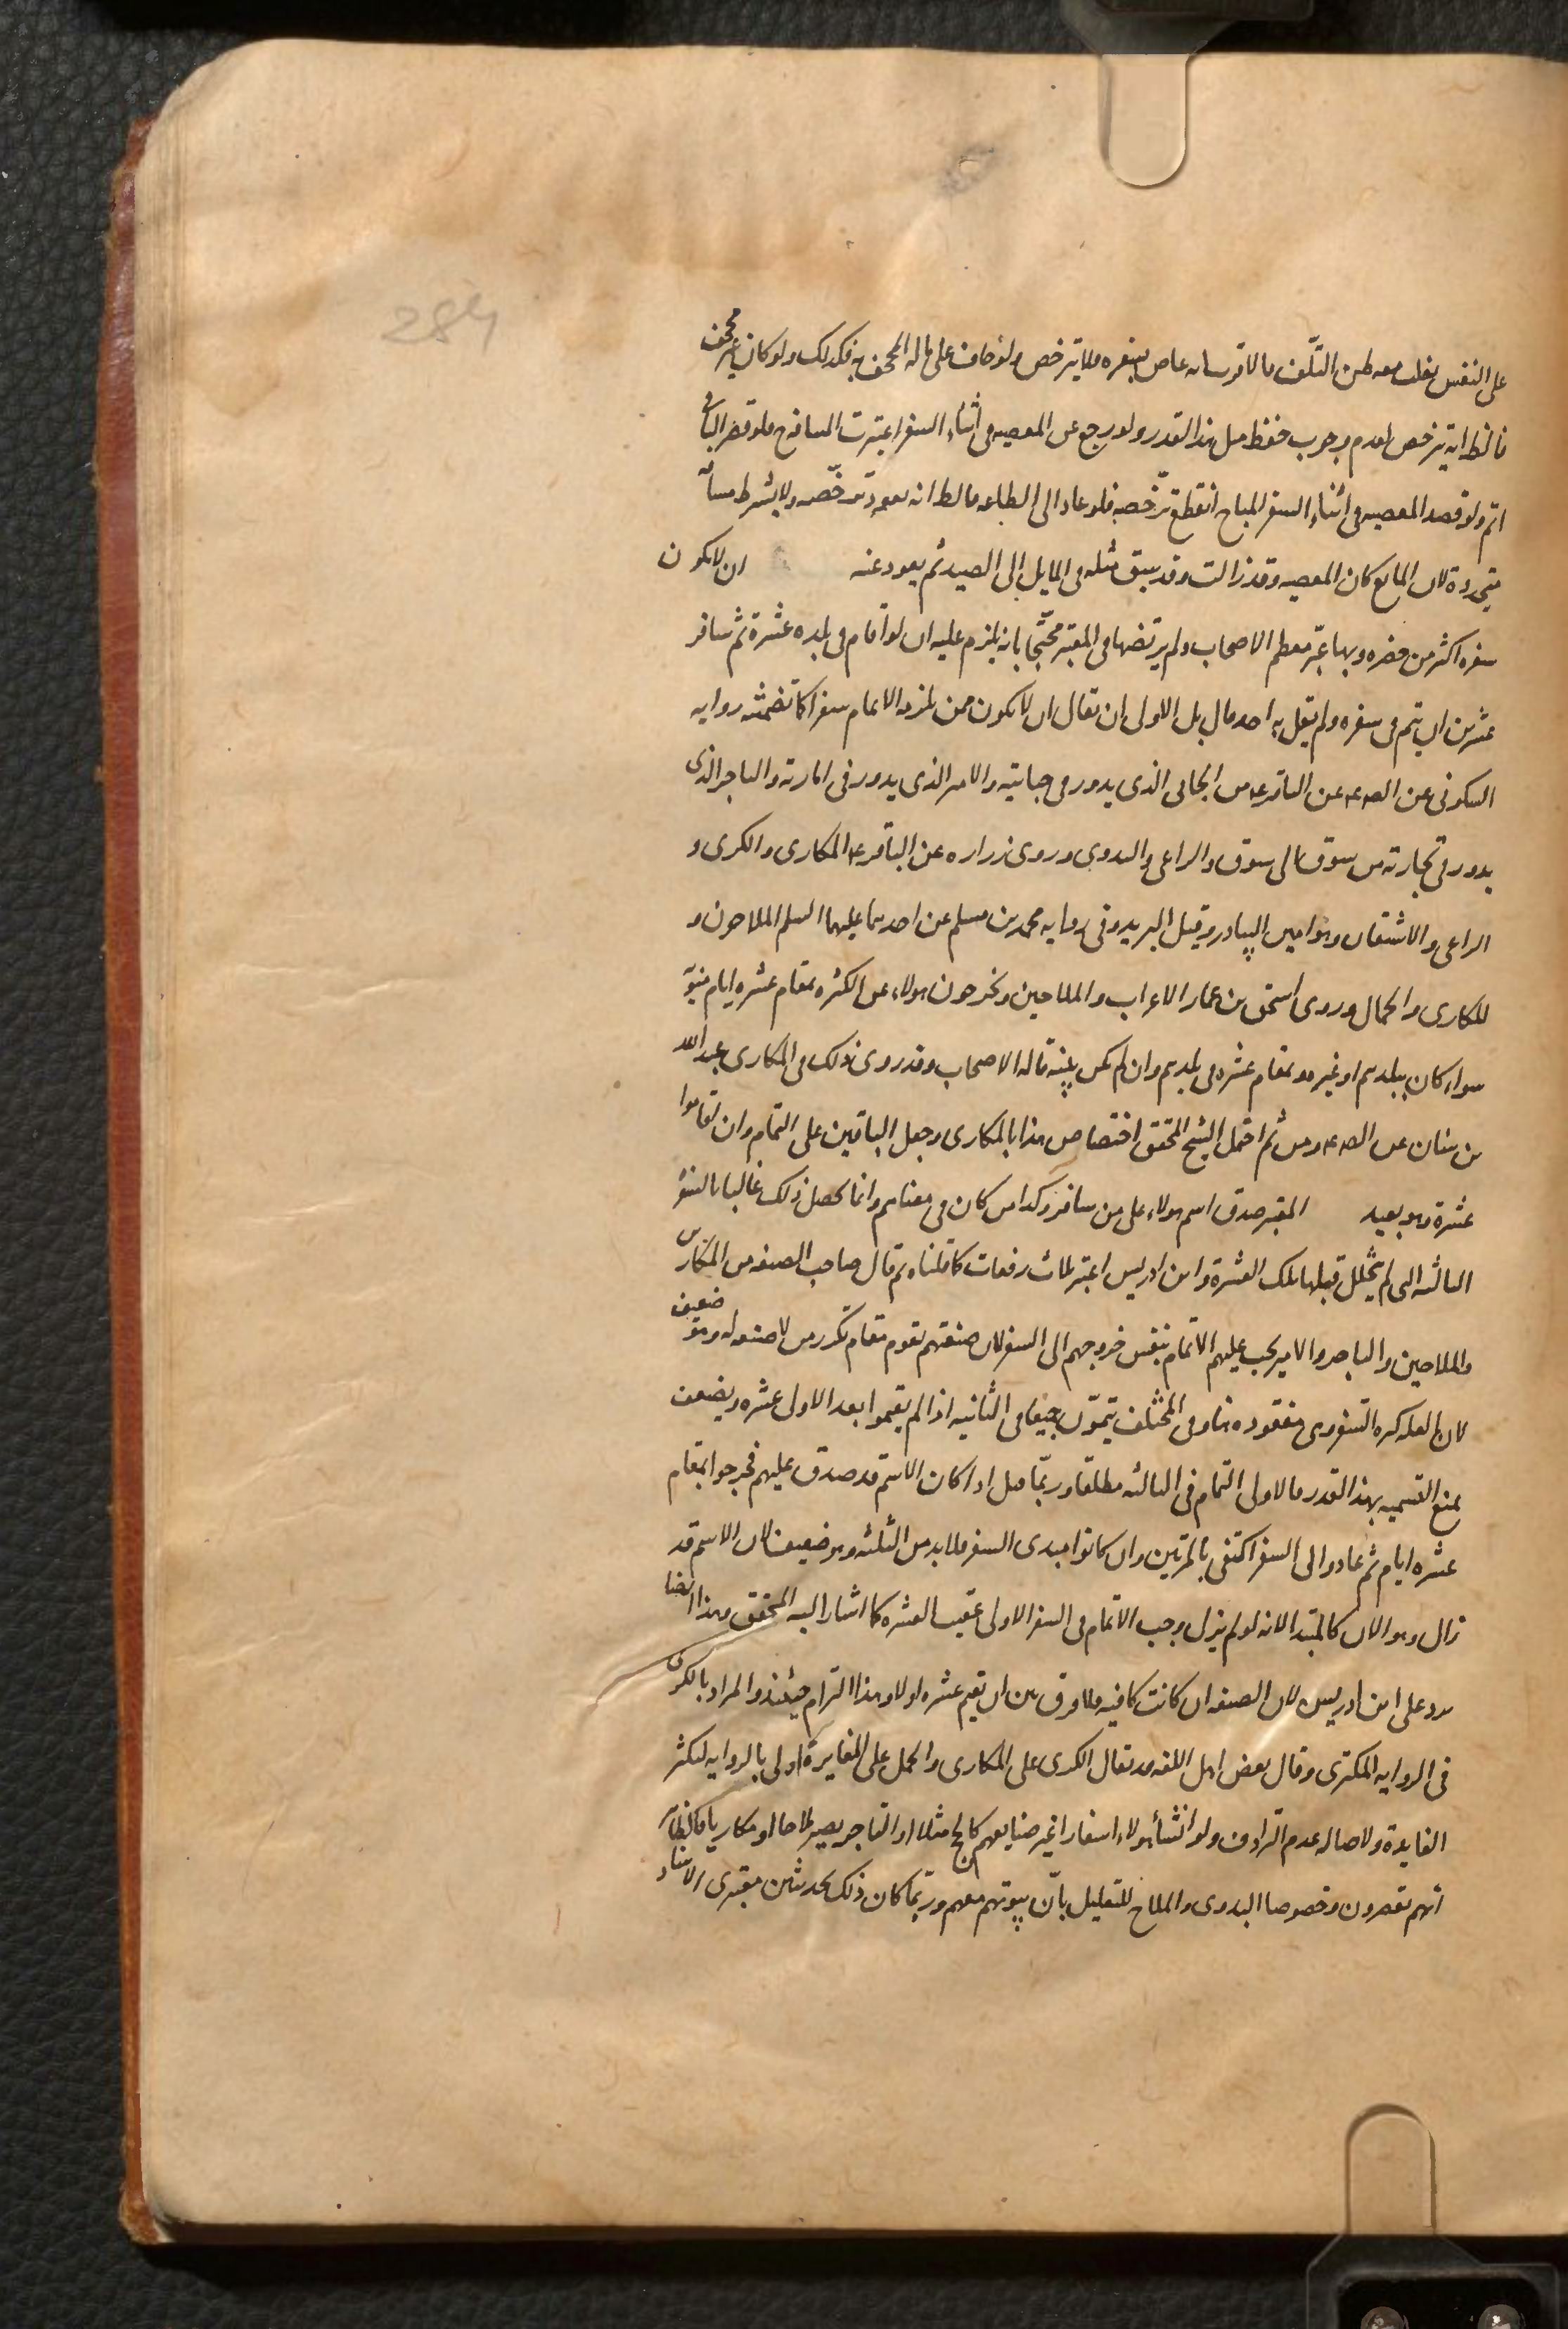 284
على النفس يغلب معه ظن التلف فالاقرب انه عاص بسفره فلا يترخص ولو خاف على ماله المجحف به فكذلك ولو كان غير مجحف
فالظ انه يترخص لعدم وجوب حفظ مثل هذا القدر ولو رجع عن المعصيه فى أثناء السفر اعتبرت المسافة ح فلو قصر الباقى
اتم ولو قصد المعصيه فى اثناء السفر المباح انقطع ترخصه فلو عاد الى الطاعه فالظ انه يعود ترخصه ولا يشترط مسافة
متجددة لان المانع كان المعصيه وقد زالت وقد سبق مثله فى المايل الى الصيد ثم يعود عنه ان لا يكون
سفره اكثر من حضره وبها عبّر معظم الاصحاب ولم يرتضها فى المعتبر محتجّا بانه يلزم عليه ان لو أقام فى بلده عشرة ثم سافر
عشرين ان يتم فى سفره ولم يقل به احد قال بل الاولى ان يقال ان لا يكون ممن يلزمه الاتمام سفرا كما تضمنته روايه
السكونى عن الصه ع عن الباقر ع من الجابى الذى يدور فى جبايته والامير الذى يدور فى امارته والتاجر الذى
يدور فى تجارته من سوق الى سوق والراعى والبدوى وروى زراره عن الباقر ع المكارى والكرى و
الراعى والاشتقان وهو امين البيادر وقيل البريد وفى روايه محمد بن مسلم عن احدهما عليهما السلم الملاحون و
المكارى والجمال وروى اسحق بن عمار الاعراب والملاحين ويخرجون هولاء عن الكثره بمقام عشره ايام بنيّة
سواء كان ببلدهم او غيره وبمقام عشره فى بلدهم وان لم يكن بنيّة قاله الاصحاب وقد روى ذلك فى المكارى عبد الله
بن سنان عن الصه ع ومن ثم احتمل الشيخ المحقق اختصاص هذا بالمكارى وجعل الباقين على التمام وان اقاموا
عشرة وهو بعيد المعتبر صدق اسم هولاء على من سافر وكذا من كان فى معناهم وانما يحصل ذلك غالبا بالسفرة
الثالثه التى لم يتخلل قبلها تلك العشرة وابن ادريس اعتبر ثلاث دفعات كما قلناه ثم قال صاحب الصنعه من المكارين
والملاحين والتاجر والامير يجب عليهم الاتمام بنفس خروجهم الى السفر لان صنعتهم تقوم مقام تكرر من لا صنعه له وهو ضعيف
لان العله كثره السفر وهى مفقوده هنا وفى المختلف يتمون جميعا فى الثانيه اذا لم يقيموا بعد الاولى عشره ويضعف
بمنع التسميه بهذا القدر فالاولى التمام فى الثالثه مطلقا وربّما قيل اذا كان الاسم قد صدق عليهم فخرجوا بمقام
عشره ايام ثم عادوا الى السفر اكتفى بالمرتين وان كانوا مبتدى السفر فلا بد من الثلثه وهو ضعيف لان الاسم قد
زال وهو الان كالمبتدا لانه لو لم يزل وجب الاتمام فى السفر الاولى عقيب العشره كما اشار اليه المحقق وهذا ايضا
يرد على ابن ادريس لان الصنعه ان كانت كافيه فلا فرق بين ان يقيم عشره اولا وهذا التزام حينئذ والمراد بالكرى
فى الروايه المكترى وقال بعض اهل اللغه قد يقال الكرى على المكارى والحمل على المغايرة اولى بالروايه لتكثر
الفايده ولاصاله عدم الترادف ولو انشأ هولاء اسفارا غير صنايعهم كالحج مثلا او التاجر يصير ملاحا او مكاريا فالظاهر
انهم يقصرون وخصوصا البدوى والملاح للتعليل بأنّ بيوتهم معهم وربّما كان ذلك بحديثين معتبرى الاسناد